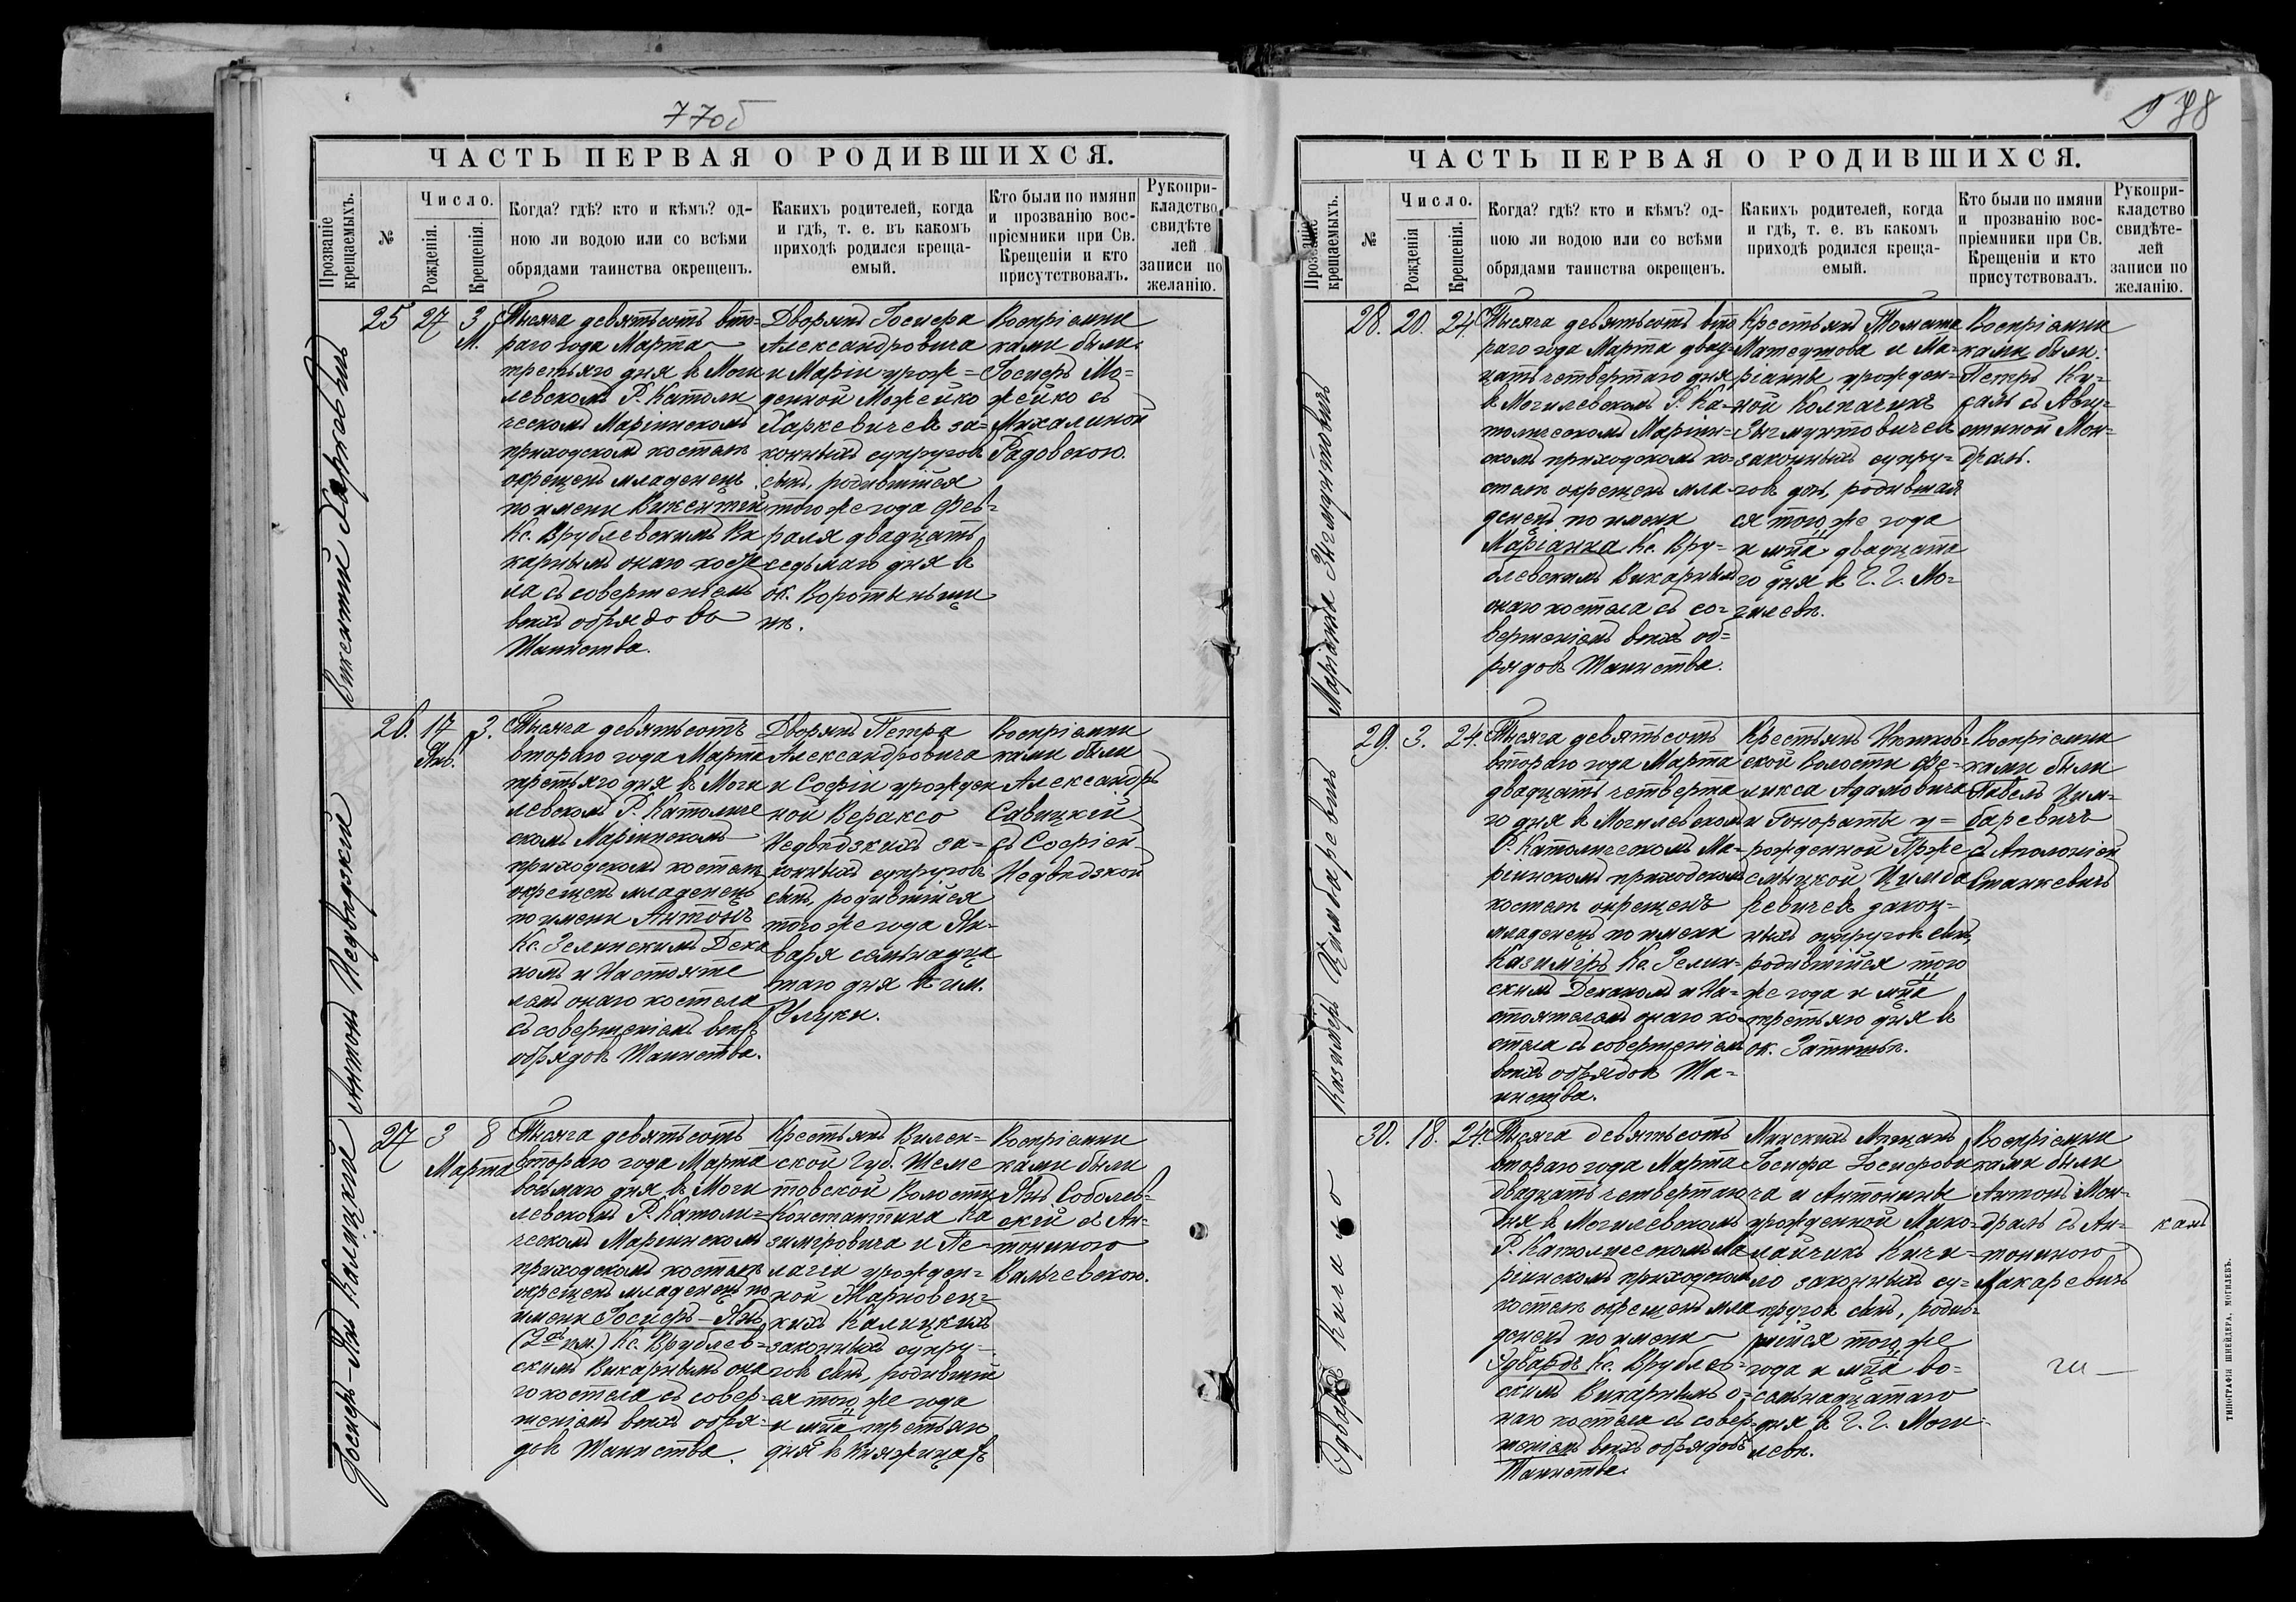 77об
ЧАСТЬ ПЕРВАЯ О РОДИВШИХСЯ.
Прозваніе крещаемыхъ.
№
Число.
Рожденія.
Крещенія.
Когда? гдѣ? кто и кѣмъ? од-
ною ли водою или со всѣми
обрядами таинства окрещенъ.
Какихъ родителей, когда
и гдѣ, т. е. въ какомъ
приходѣ родился креща-
емый.
Кто были по имяни
и прозванію вос-
пріемники при Св.
Крещеніи и кто
присутствовалъ.
Рукопри-
кладство
свидѣте
лей
записи по
желанію.
Викентій Харкевичъ
25
27
3
М.
Тысяча девятьсотъ вто-
раго года Марта
третьяго дня въ Моги
левскомъ Р. Католи
ческомъ Маріинскомъ
приходскомъ костелѣ
окрещенъ младенецъ
по имени Викентій
Кс. Врублевскимъ Ви
карнымъ онаго косте
ла съ совершеніемъ
всѣхъ обрядовъ
Таинства.
Дворянъ Іосифа
Александровича
и Маріи урож=
денной Можейко
Харкевичей за=
конныхъ супруговъ
сынъ, родившійся
того же года Фев=
раля двадцать
седьмаго дня въ
ок. Воротыньщи
нѣ.
Воспріемни
ками были:
Іосифъ Мо=
жейко съ
Михалиной
Радовскою.
Антонъ Недвѣдзкій
26.
17
Янв.
3.
Тысяча девятьсотъ
втораго года Марта
третьяго дня въ Моги
левскомъ Р. Католиче
скомъ Маріинскомъ
приходскомъ костелѣ
окрещенъ младенецъ
по имени Антонъ
Кс. Зелинскимъ Дека
номъ и Настояте
лемъ онаго костела
съ совершеніемъ всѣхъ
обрядовъ Таинства.
Дворянъ Петра
Александровича
и Софіи урожден
ной Вераксо
Недвѣдзкихъ за=
конныхъ супруговъ
сынъ, родившійся
того же года Ян=
варя семьнадца
таго дня въ им.
Улуки.
Воспріемни
ками были
Александръ
Савицкій
съ Софіей
Недвѣдзкой
Іосифъ-Янъ Калицкій
27
3
Марта
8
Тысяча девятьсотъ
втораго года Марта
восьмаго дня въ Моги
левскомъ Р. Католи=
ческомъ Маріинскомъ
приходскомъ костелѣ
окрещенъ младенецъ по
имени Іосифъ-Янъ
(2хъ им.) Кс. Врублев=
скимъ Викарнымъ она
го костела съ совер=
шеніемъ всѣхъ обря=
довъ Таинства.
Крестьянъ Вилен=
ской Губ. Шеме
товской Волости
Константина Ка
зиміровича и Пе=
лагеи урожден=
ной Жарновец=
кихъ Калицкихъ
законныхъ супру-
говъ сынъ, родившій
ся того же года
и мца третьяго
дня въ Княжицахъ
Воспріемни
ками были
Янъ Соболев=
скій съ Ан=
тониною
Вальчевскою.
78
ЧАСТЬ ПЕРВАЯ О РОДИВШИХСЯ.
Прозваніе крещаемыхъ.
№
Число.
Рожденія
Крещенія.
Когда? гдѣ? кто и кѣмъ? од-
ною ли водою или со всѣми
обрядами таинства окрещенъ.
Какихъ родителей, когда
и гдѣ, т. е. въ какомъ
приходѣ родился креща-
емый.
Кто были по имяни
и прозванію вос-
пріемники при Св.
Крещеніи и кто
присутствовалъ.
Рукопри-
кладство
свидѣте-
лей
записи по
желанію.
Маріанна Зигмунтовичъ
28.
20.
24.
Тысяча девятьсотъ вто
раго года Марта двад=
цать четвертаго дня
въ Могилевскомъ Р. Ка=
толическомъ Маріин=
скомъ приходскомъ ко=
стелѣ окрещенъ мла
денецъ по имени
Маріанна Кс. Вру=
блевскимъ Викарнымъ
онаго костела съ со=
вершеніемъ всѣхъ об=
рядовъ Таинства.
Крестьянъ Томаша
Матеушова и Ма=
ріанны урожден=
ной Колпачикъ
Зигмунтовичей
законныхъ супру=
говъ дочь, родившая
ся того же года
и мца двадцата
го дня въ Г. Г. Мо=
гилевѣ.
Воспріемни
ками были:
Петръ Ку=
саль съ Авгу=
стиной Мон=
драль.
Казимеръ Цимбаревичъ
29.
3.
24.
Тысяча девятьсотъ
втораго года Марта
двадцать четверта
го дня въ Могилевскомъ
Р. Католическомъ Ма=
ріинскомъ приходскомъ
костелѣ окрещенъ
младенецъ по имени
Казимеръ Кс. Зелин=
скимъ Деканомъ и На=
стоятелемъ онаго ко=
стела съ совершеніемъ
всѣхъ обрядовъ Та=
инства.
Крестьянъ
ской Волости Фе=
ликса Адамовича
и Гонораты у=
рожденной Прже
смыцкой Цимба
ревичей закон=
ныхъ супруговъ сынъ,
родившійся того
же года и мца
третьяго дня въ
ок. Затишьѣ.
Воспріемни
ками были
Павелъ Цим=
баревичъ
съ Аполоніей
Станкевичъ
Эдвардъ Кигило
30.
18.
24.
Тысяча девятьсотъ
втораго года Марта
двадцать четвертаго
дня въ Могилевскомъ
Р. Католическомъ Ма
ріинскомъ приходскомъ
костелѣ окрещенъ мла
денецъ по имени
Эдвардъ Кс. Врублев=
скимъ Викарнымъ о=
наго костела съ совер=
шеніемъ всѣхъ обрядовъ
Таинства.
Минскихъ Мѣщанъ
Іосифа Іосифови
ча и Антонины
урожденной Мико=
лайчикъ Кичи=
ло законныхъ су=
пруговъ сынъ, родив=
шійся того же
года и мца во=
семьнадцатаго
дня въ Г. Г. Моги=
левѣ.
Воспріемни
ками были
Антонъ Мон=
драль съ Ан=
тониною
Макаревичъ
ТИПОГРАФІЯ ШНЕЙДЕРА, МОГИЛЕВЪ.